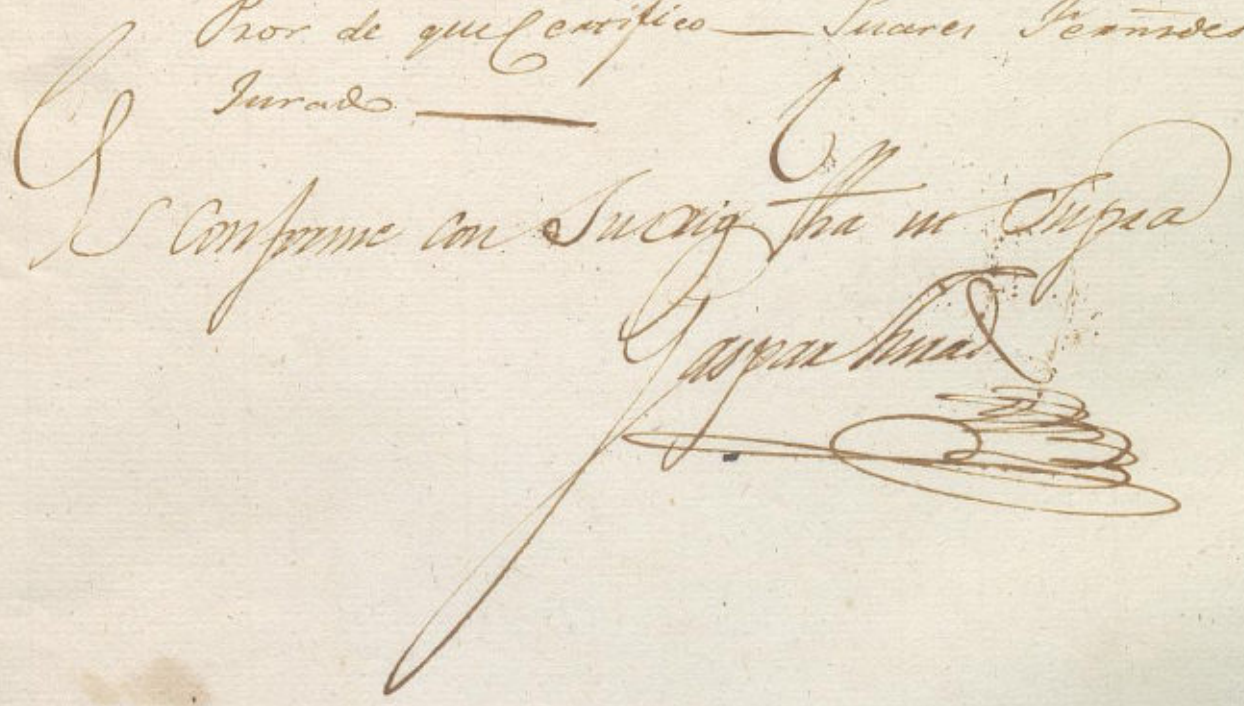 Pror de que Certifico — Suares Fernñdes
Jurado —
Es Conforme con Su orig fha ut Supra
Gaspar Jurado